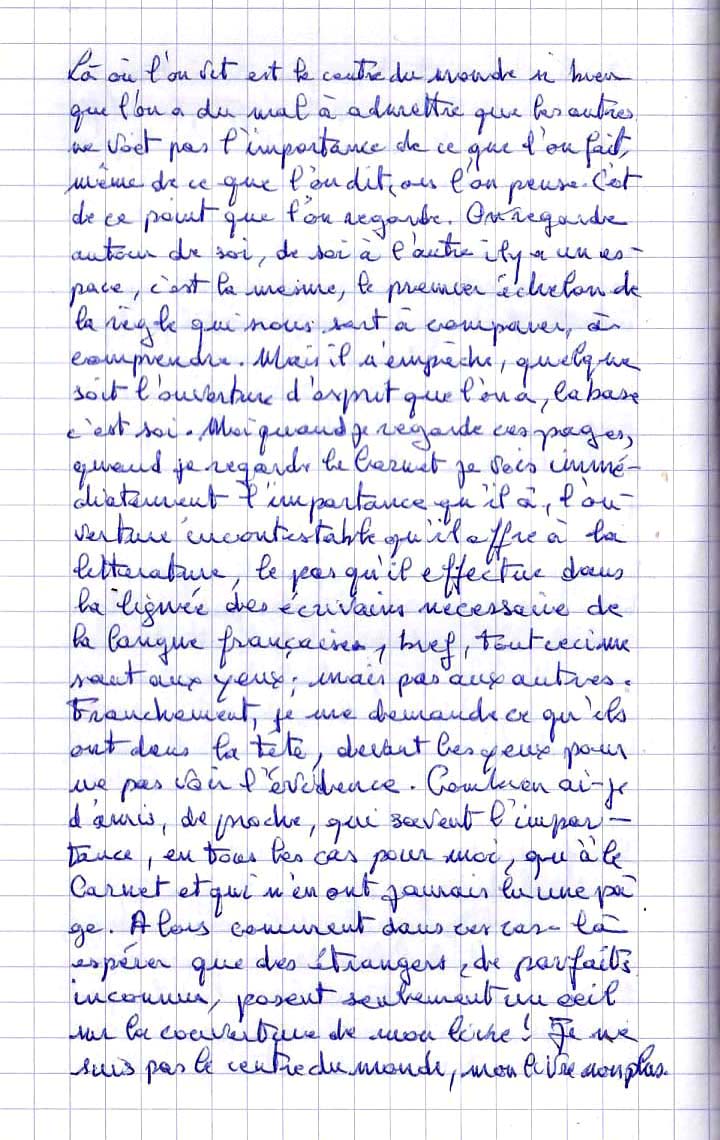 Là où l'on vit est le centre du monde si bien
que l'on a du mal à admettre que les autres
ne voiet pas l'importance de ce que l'on fait,
même de ce que l'on dit, ou l'on pense. C'est
de ce point que l'on regarde. On regarde
autour de soi, de soi à l'autre il y a un es-
pace, c'est la mesure, le premier échelon de
la règle qui nous sert à comparer, à
comprendre. Mais il n'empêche, quelque
soit l'ouverture d'esprit que l'on a, la base
c'est soi. Moi quand je regarde ces pages,
quand je regarde le Carnet je vois immé-
diatement l'importance qu'il a, l'ou-
verture incontestable qu'il offre à la
littérature, le pas qu'il effectue dans
la lignée des écrivains nécessaire de
la langue française, bref, tout ceci me
saut aux yeux; mais pas aux autres.
Franchement, je me demande ce qu'ils
ont dans la tête, devant les yeux pour
ne pas voir l'évidence. Combien ai-je
d'amis, de proche, qui savent l'impor-
tance, en tous les cas pour moi, qu'à le
Carnet et qui n'en ont jamais lu une pa
ge. Alors comment dans ces cas-là
espérer que des étrangers, de parfaits
inconnus, posent seulement un oeil
sur la couverture de mon livre! Je ne
suis pas le centre du monde, mon livre non plus.